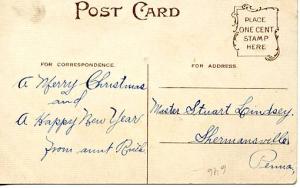 POST CARD
PLACE
ONE CENT
STAMP
HERE
FOR CORRESPONDENCE.
FOR ADDRESS.
A Merry Christmas
and
A Happy New Year
from aunt Ruth
Master Stuart Lindsey.
Shermansville
Penna,